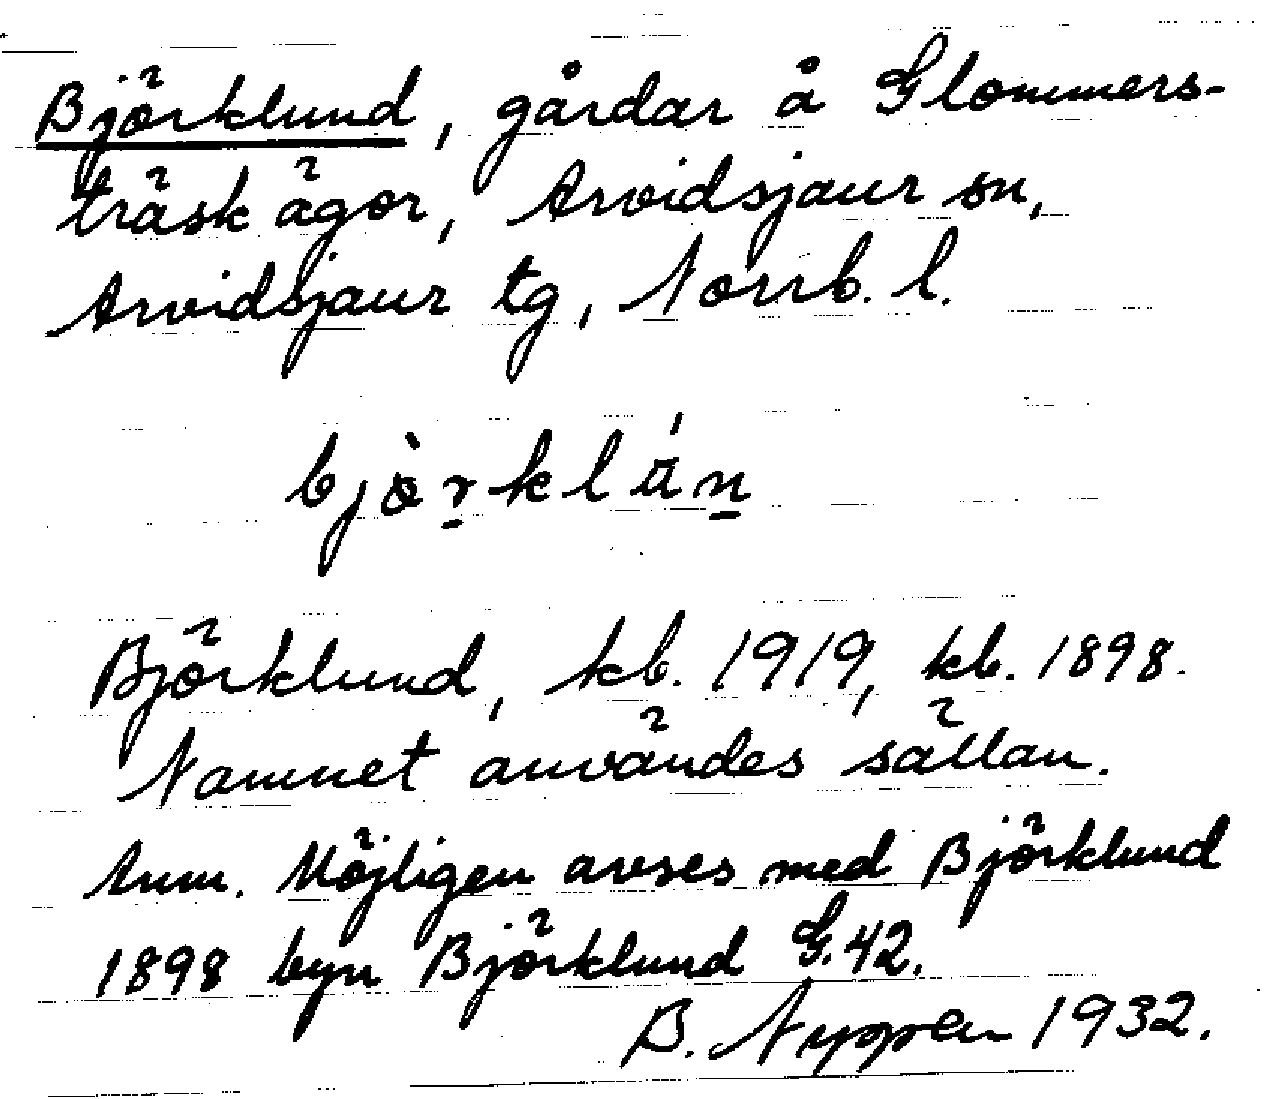 Björklund, gårdar å Glommers-
träsk ägor, Arvidsjaur sn,
Arvidsjaur tg, Norrb. l.
bjòr̲klǘn̲
Björklund, kb. 1919, kb. 1898.
Namnet användes sällan.
Anm. Möjligen avses med Björklund
1898 byn Björklund G.42.
B. Nyppen 1932.